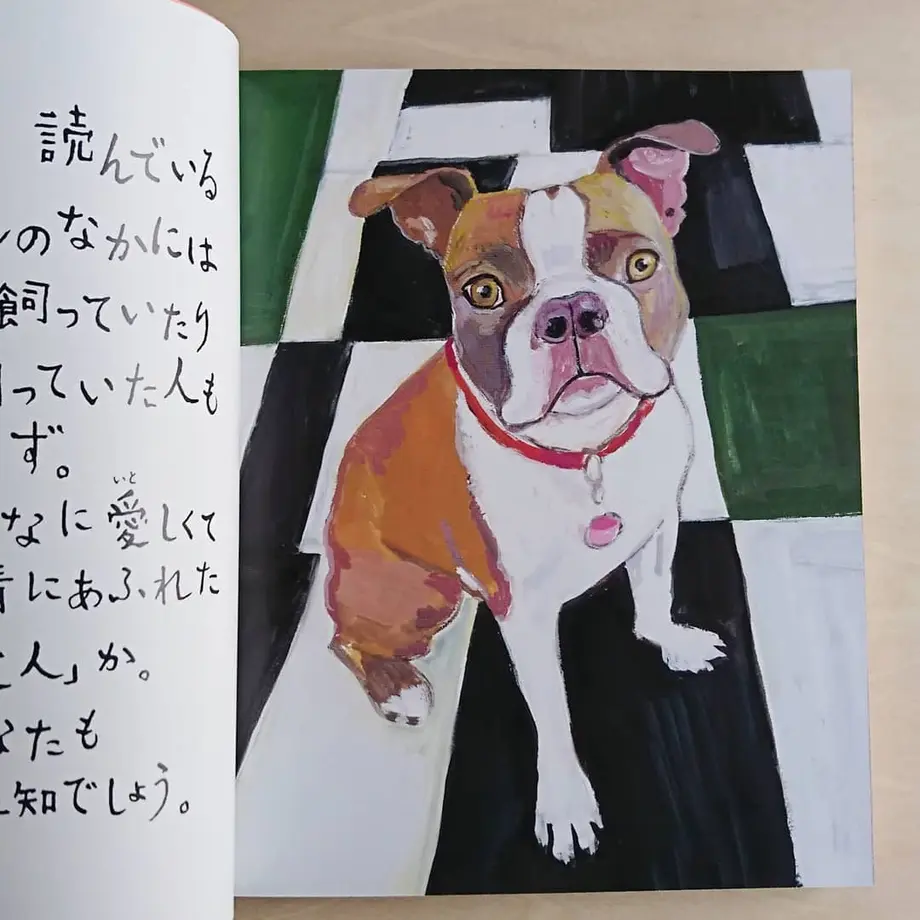 読んでいる
のなかには
飼っていたり
っていた人も
ず。
なに愛しくて
いと
にあふれた
人」か。
なたも
知でしょう。